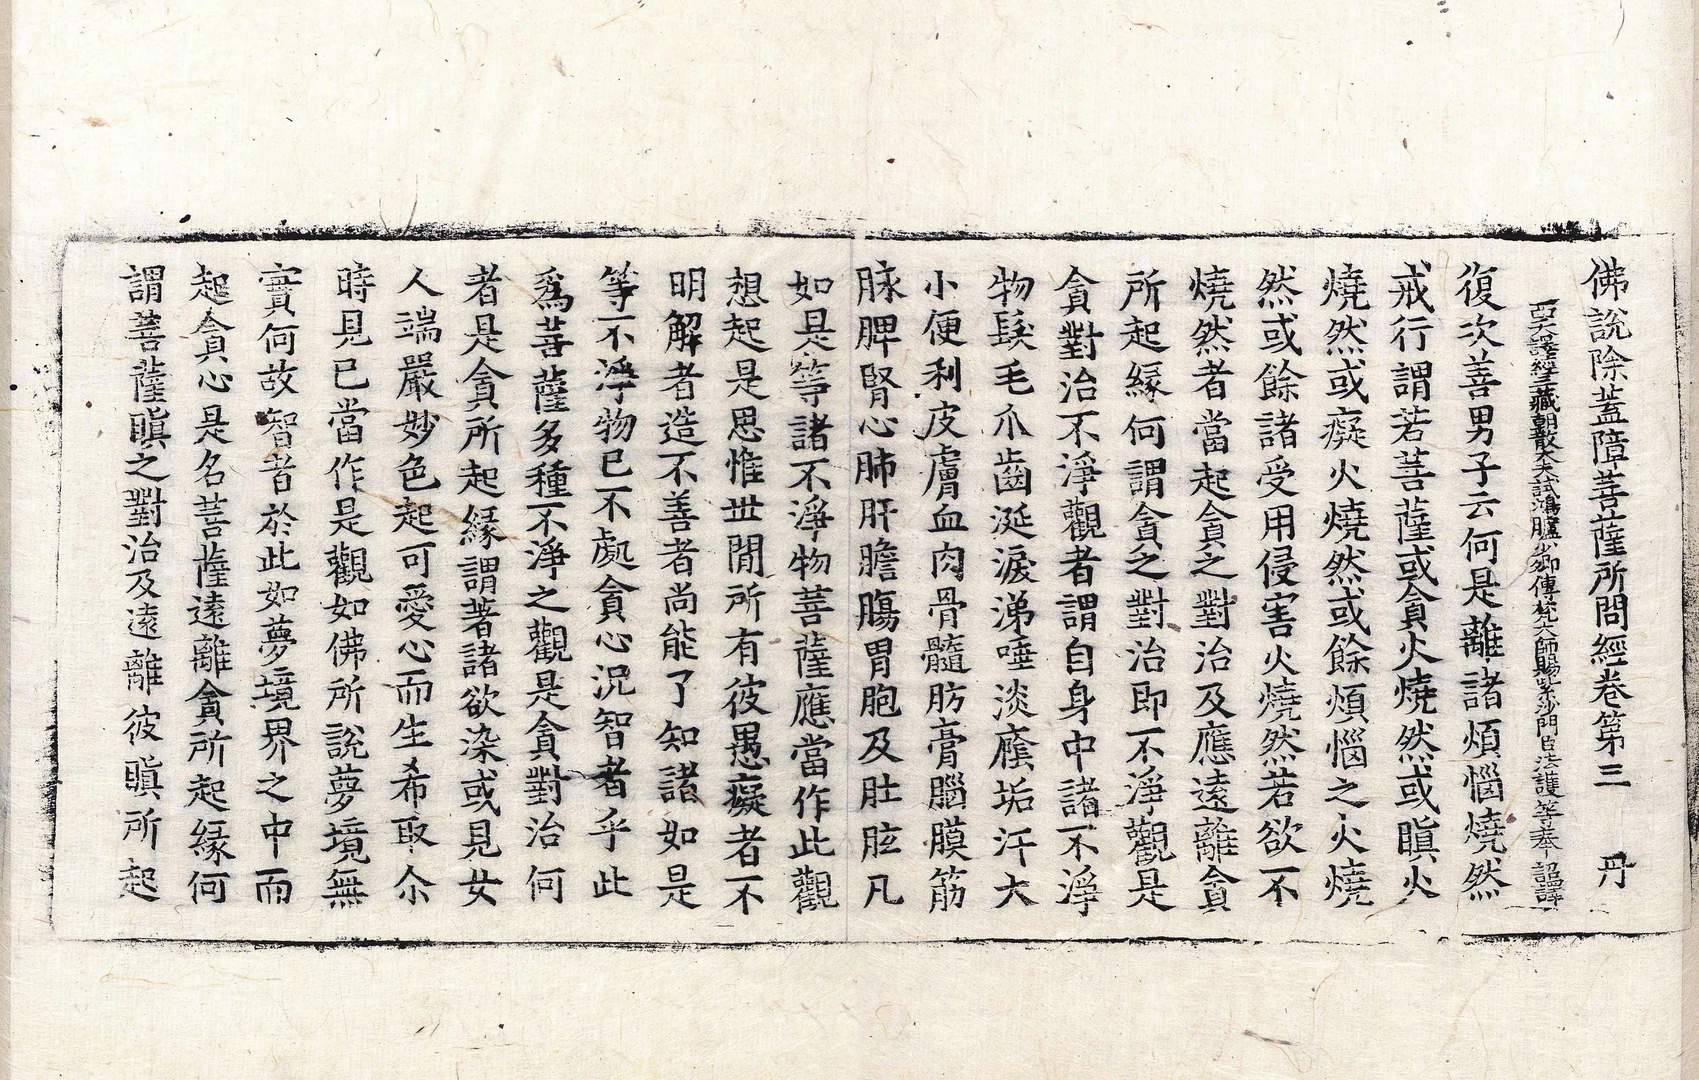 佛說除蓋障菩薩所問經卷第三 丹
西天譯經三藏朝散大夫試鴻臚少卿傳梵大師賜紫沙門臣法護等奉 詔譯
復次善男子云何是離諸煩惱燒然
戒行謂若菩薩或貪火燒然或瞋火
燒然或癡火燒然或餘煩惱之火燒
然或餘諸受用侵害火燒然若欲不
燒然者當起貪之對治及應遠離貪
所起緣何謂貪之對治即不淨觀是
貪對治不淨觀者謂自身中諸不淨
物髮毛爪齒涎淚涕唾淡癊垢汗大
小便利皮膚血肉骨髓肪膏腦膜筋
脉脾腎心肺肝膽膓胃胞及肚胘凡
如是等諸不淨物菩薩應當作此觀
想起是思惟世間所有彼愚癡者不
明解者造不善者尚能了知諸如是
等不淨物已不處貪心況智者乎此
爲菩薩多種不淨之觀是貪對治何
者是貪所起緣謂著諸欲染或見女
人端嚴妙色起可愛心而生希取尒
時見已當作是觀如佛所說夢境無
實何故智者於此如夢境界之中而
起貪心是名菩薩遠離貪所起緣何
謂菩薩瞋之對治及遠離彼瞋所起